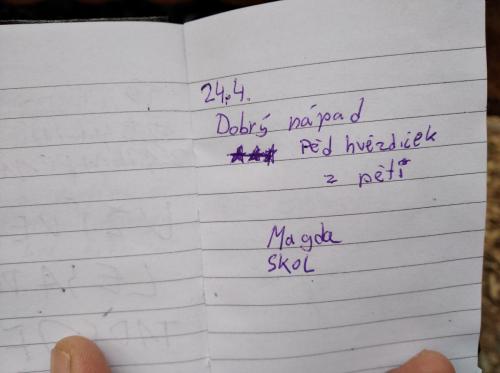 24.4.
Dobrý nápad
Pěd hvězdiček
z pěti
Magda
SKOL